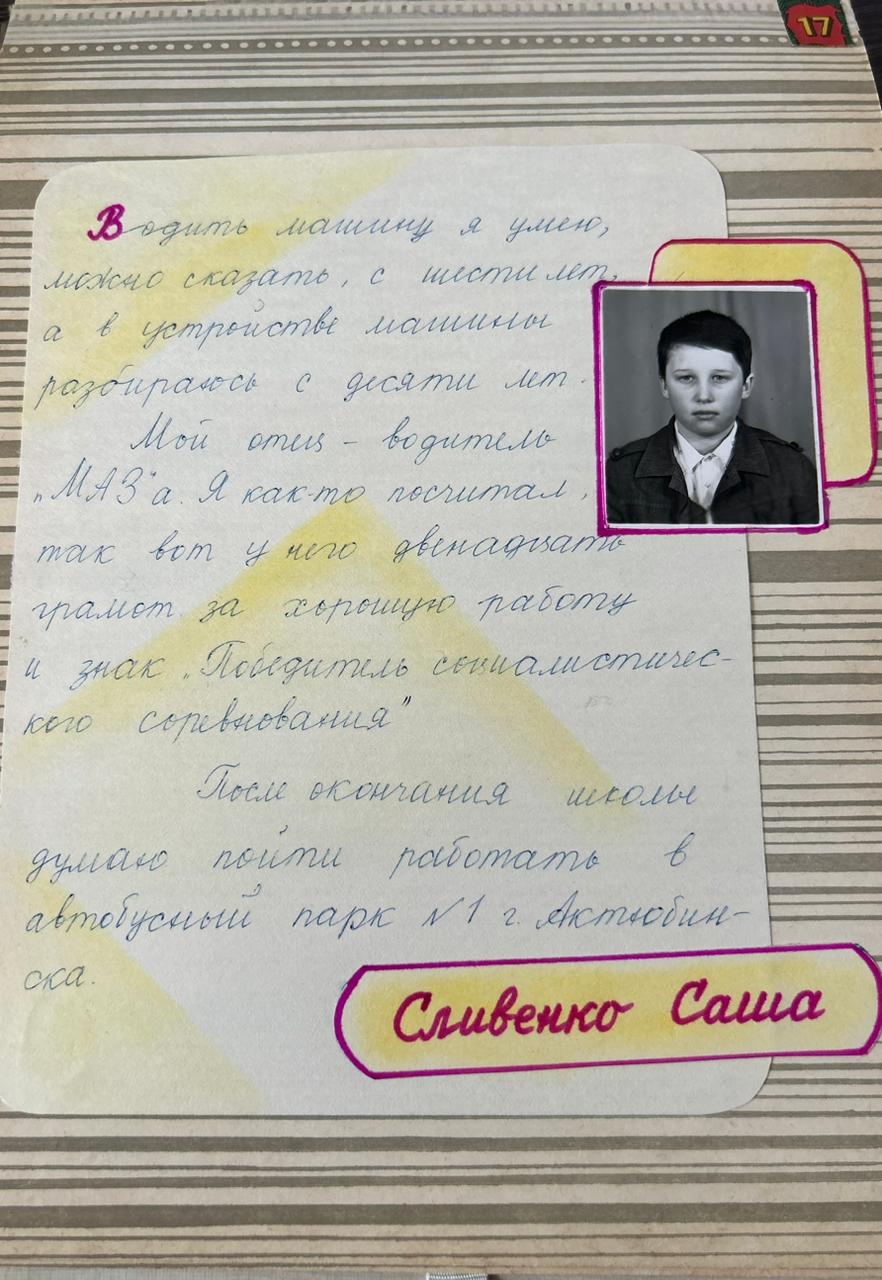 17
Водить машину я умею,
можно сказать, с шести лет,
а в устройстве машины
разбираюсь с десяти лет.
Мой отец - водитель
„МАЗ"а. Я как-то посчитал,
так вот у него двенадцать
грамот за хорошую работу
и знак „Победитель социалистичес-
кого соревнования"
После окончания школы
думаю пойти работать в
автобусный парк №1 г. Актюбин-
ска.
Сливенко Саша